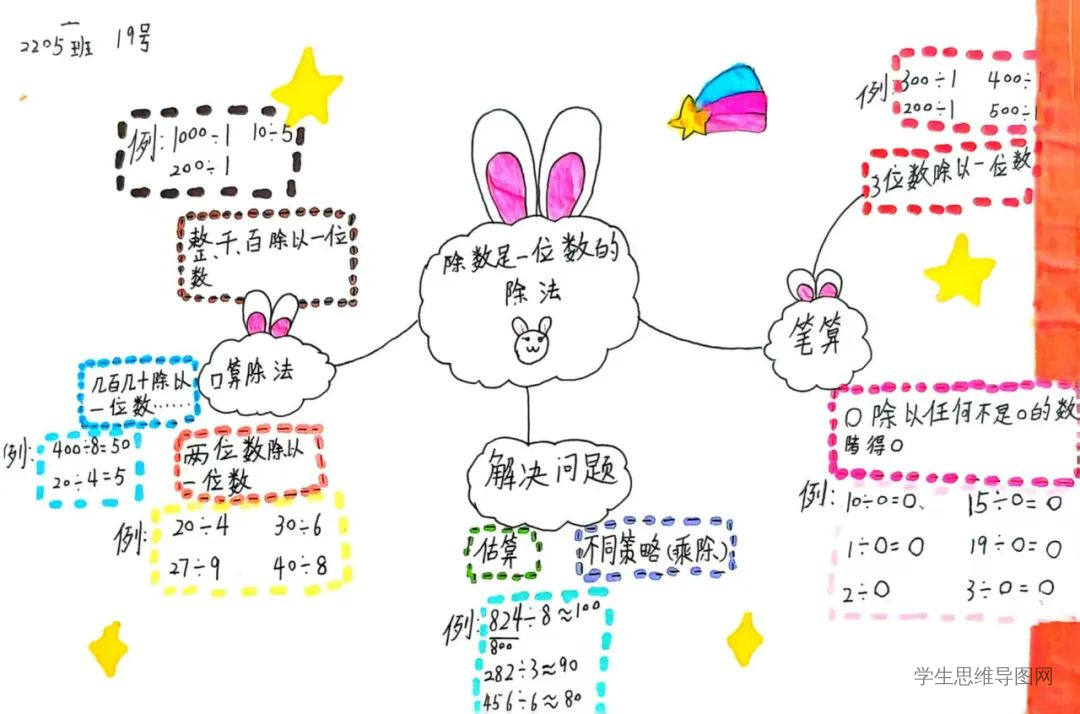 2205班 19号
例: 1000÷1 10÷5
200÷1
整、千、百除以一位
数
口算除法
几百几十除以
一位数……
例: 400÷8=50
20÷4=5
两位数除以
一位数
例: 20÷4 30÷6
27÷9 40÷8
除数是一位数的
除法
解决问题
估算
不同策略(乘除)
例: 824÷8≈100
800
282÷3≈90
456÷6≈80
例: 300÷1 400÷1
200÷1 500÷1
3位数除以一位数
笔算
0除以任何不是0的数
例: 10÷0=0、 15÷0=0
1÷0=0 19÷0=0
2÷0 3÷0=0
学生思维导图网